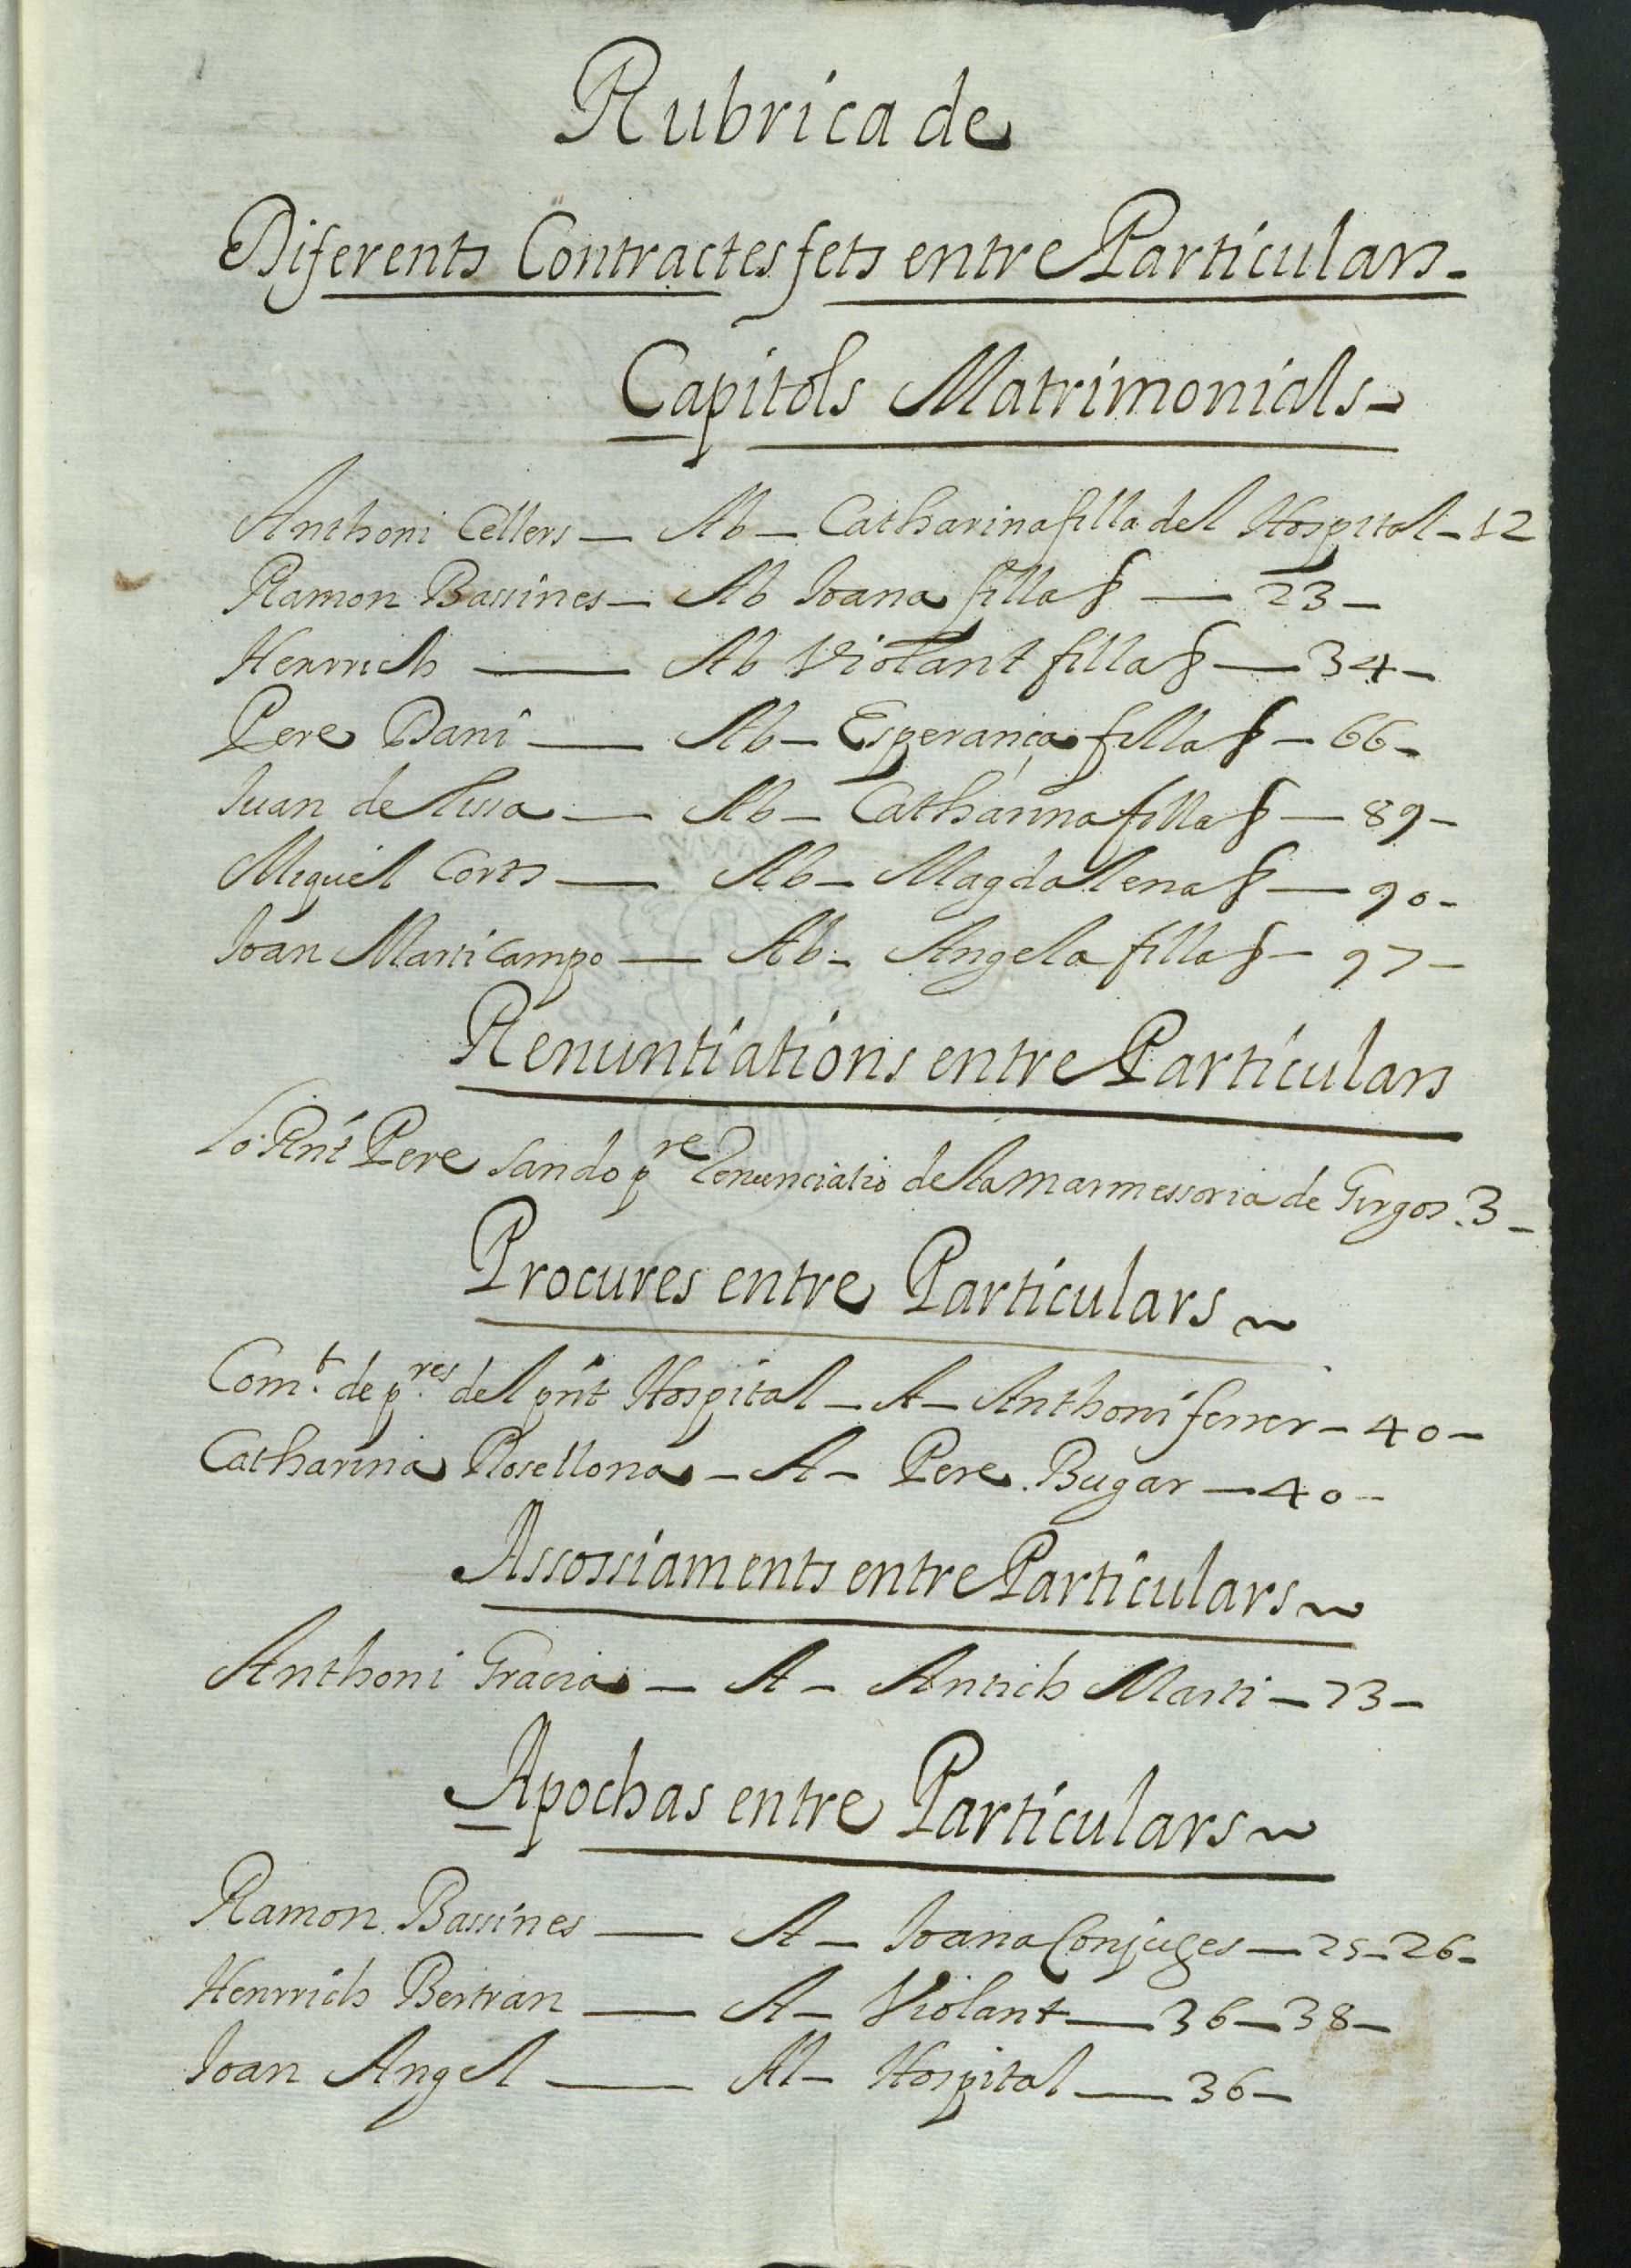 Rubrica de
Diferents Contractes fets entre Particulars
Capitols Matrimonials
Anthoni Cellers — Ab — Catharina filla del Hospital — 12
Ramon Bassines — Ab Joana filla § — 23 —
Henrrich — Ab Violant filla § — 34 —
Pere Dani — Ab — Esperança filla § — 66 —
Juan de — Ab — Catharina filla § — 89 —
Miquel Corts — Ab — Magdalena § — 90 —
Joan Marticampo — Ab — Angela filla § — 97 —
Renuntiations entre Particulars
Lo Rnt Pere Sando pre renunciatio de la marmessoria de Girgos . 3 —
Procures entre Particulars
Comt. de pres. del pnt Hospital — A — Anthoni ferrer — 40 —
Catharina Rosellona — A — Pere Bugar — 40 —
Assossiaments entre Particulars
Anthoni Gracia — A — Antich Marti — 73 —
Apochas entre Particulars
Ramon Bassines — A — Joana Conjuges — 25 — 26 —
Henrrich Bertran — A — Violant — 36 — 38 —
Joan Angel — Al — Hospital — 36 —